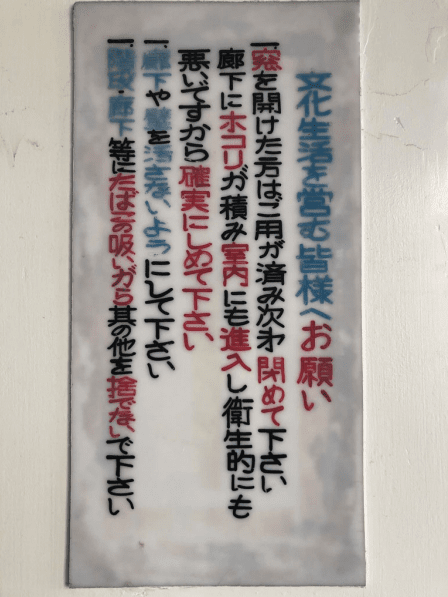 文化生活を営む皆様へお願い
一、窓を開けた方はご用が済み次才閉めて下さい
廊下にホコリが積み室内にも進入し衛生的にも
悪いですから確実にしめて下さい
一、廊下や壁を汚さないようにして下さい
一、階段・廊下等にたばこの吸いがら其の他を捨てないで下さい